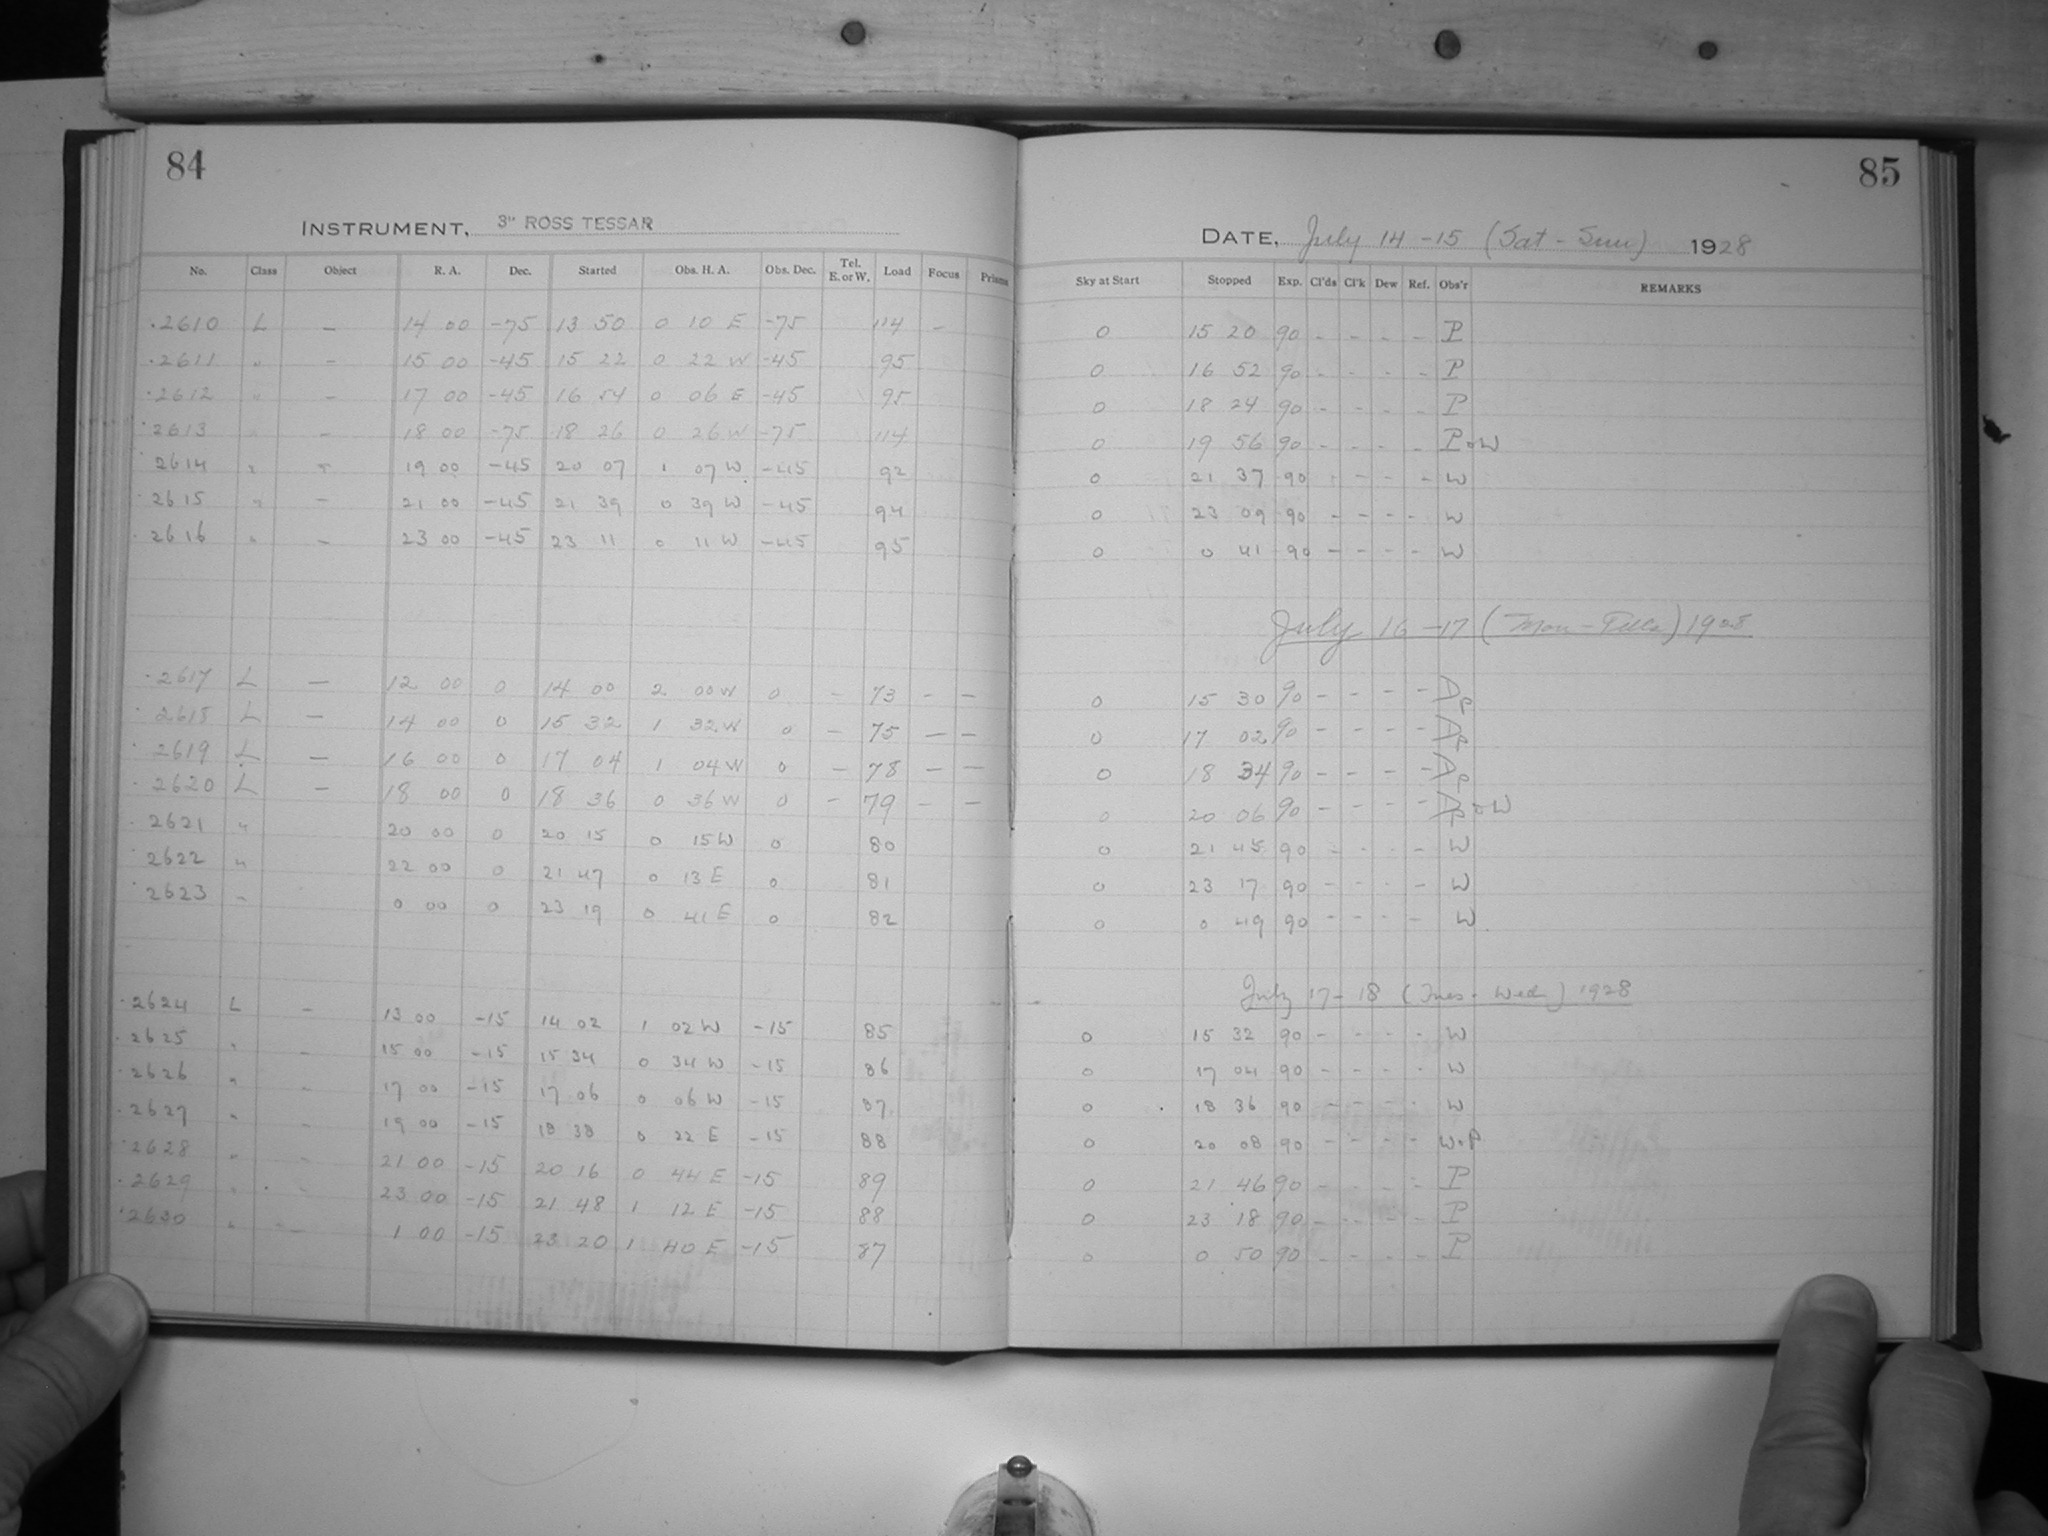 84
INSTRUMENT, 3" ROSS TESSAR
No. Class Object R. A. Dec. Started Obs. H. A. Obs. Dec. Tel. E. or W. Load Focus Prisms
.2610 L — 14 00 -75 13 50 0 10 E -75 114 -
.2611 " — 15 00 -45 15 22 0 22 W -45 95
.2612 " - 17 00 -45 16 54 0 06 E -45 95
.2613 " - 18 00 -75 18 26 0 26 W -75 114
2614 " - 19 00 -45 20 07 1 07 W -45 92
.2615 " - 21 00 -45 21 39 0 39 W -45 94
.2616 " - 23 00 -45 23 11 0 11 W -45 95
.2617 L — 12 00 0 14 00 2 00 W 0 - 73 - -
.2618 L — 14 00 0 15 32 1 32 W 0 - 75 - -
.2619 L — 16 00 0 17 04 1 04 W 0 - 78 - -
.2620 L — 18 00 0 18 36 0 36 W 0 - 79 - -
.2621 " 20 00 0 20 15 0 15 W 0 80
.2622 " 22 00 0 21 47 0 13 E 0 81
.2623 " 0 00 0 23 19 0 41 E 0 82
.2624 L - 13 00 -15 14 02 1 02 W -15 85
.2625 " - 15 00 -15 15 34 0 34 W -15 86
.2626 " - 17 00 -15 17 06 0 06 W -15 87
.2627 " - 19 00 -15 18 38 0 22 E -15 88
.2628 " - 21 00 -15 20 16 0 44 E -15 89
.2629 " - 23 00 -15 21 48 1 12 E -15 88
.2630 " - 1 00 -15 23 20 1 40 E -15 87
85
DATE, July 14-15 (Sat - Sun) 1928
Sky at Start Stopped Exp. Cl'ds Cl'k Dew Ref. Obs'r REMARKS
0 15 20 90 - - - - P
0 16 52 90 - - - - P
0 18 24 90 - - - - P
0 19 56 90 - - - - P & W
0 21 37 90 - - - - W
0 23 09 90 - - - - W
0 0 41 90 - - - - W
July 16-17 (Mon - Tues) 1928
0 15 30 90 - - - -
0 17 02 90 - - - -
0 18 34 90 - - - -
0 20 06 90 - - - - & W
0 21 45 90 - - - - W
0 23 17 90 - - - - W
0 0 49 90 - - - - W
July 17-18 (Tues - Wed) 1928
0 15 32 90 - - - - W
0 17 04 90 - - - - W
0 18 36 90 - - - - W
0 20 08 90 - - - - W.P
0 21 46 90 - - - - P
0 23 18 90 - - - - P
0 0 50 90 - - - - P